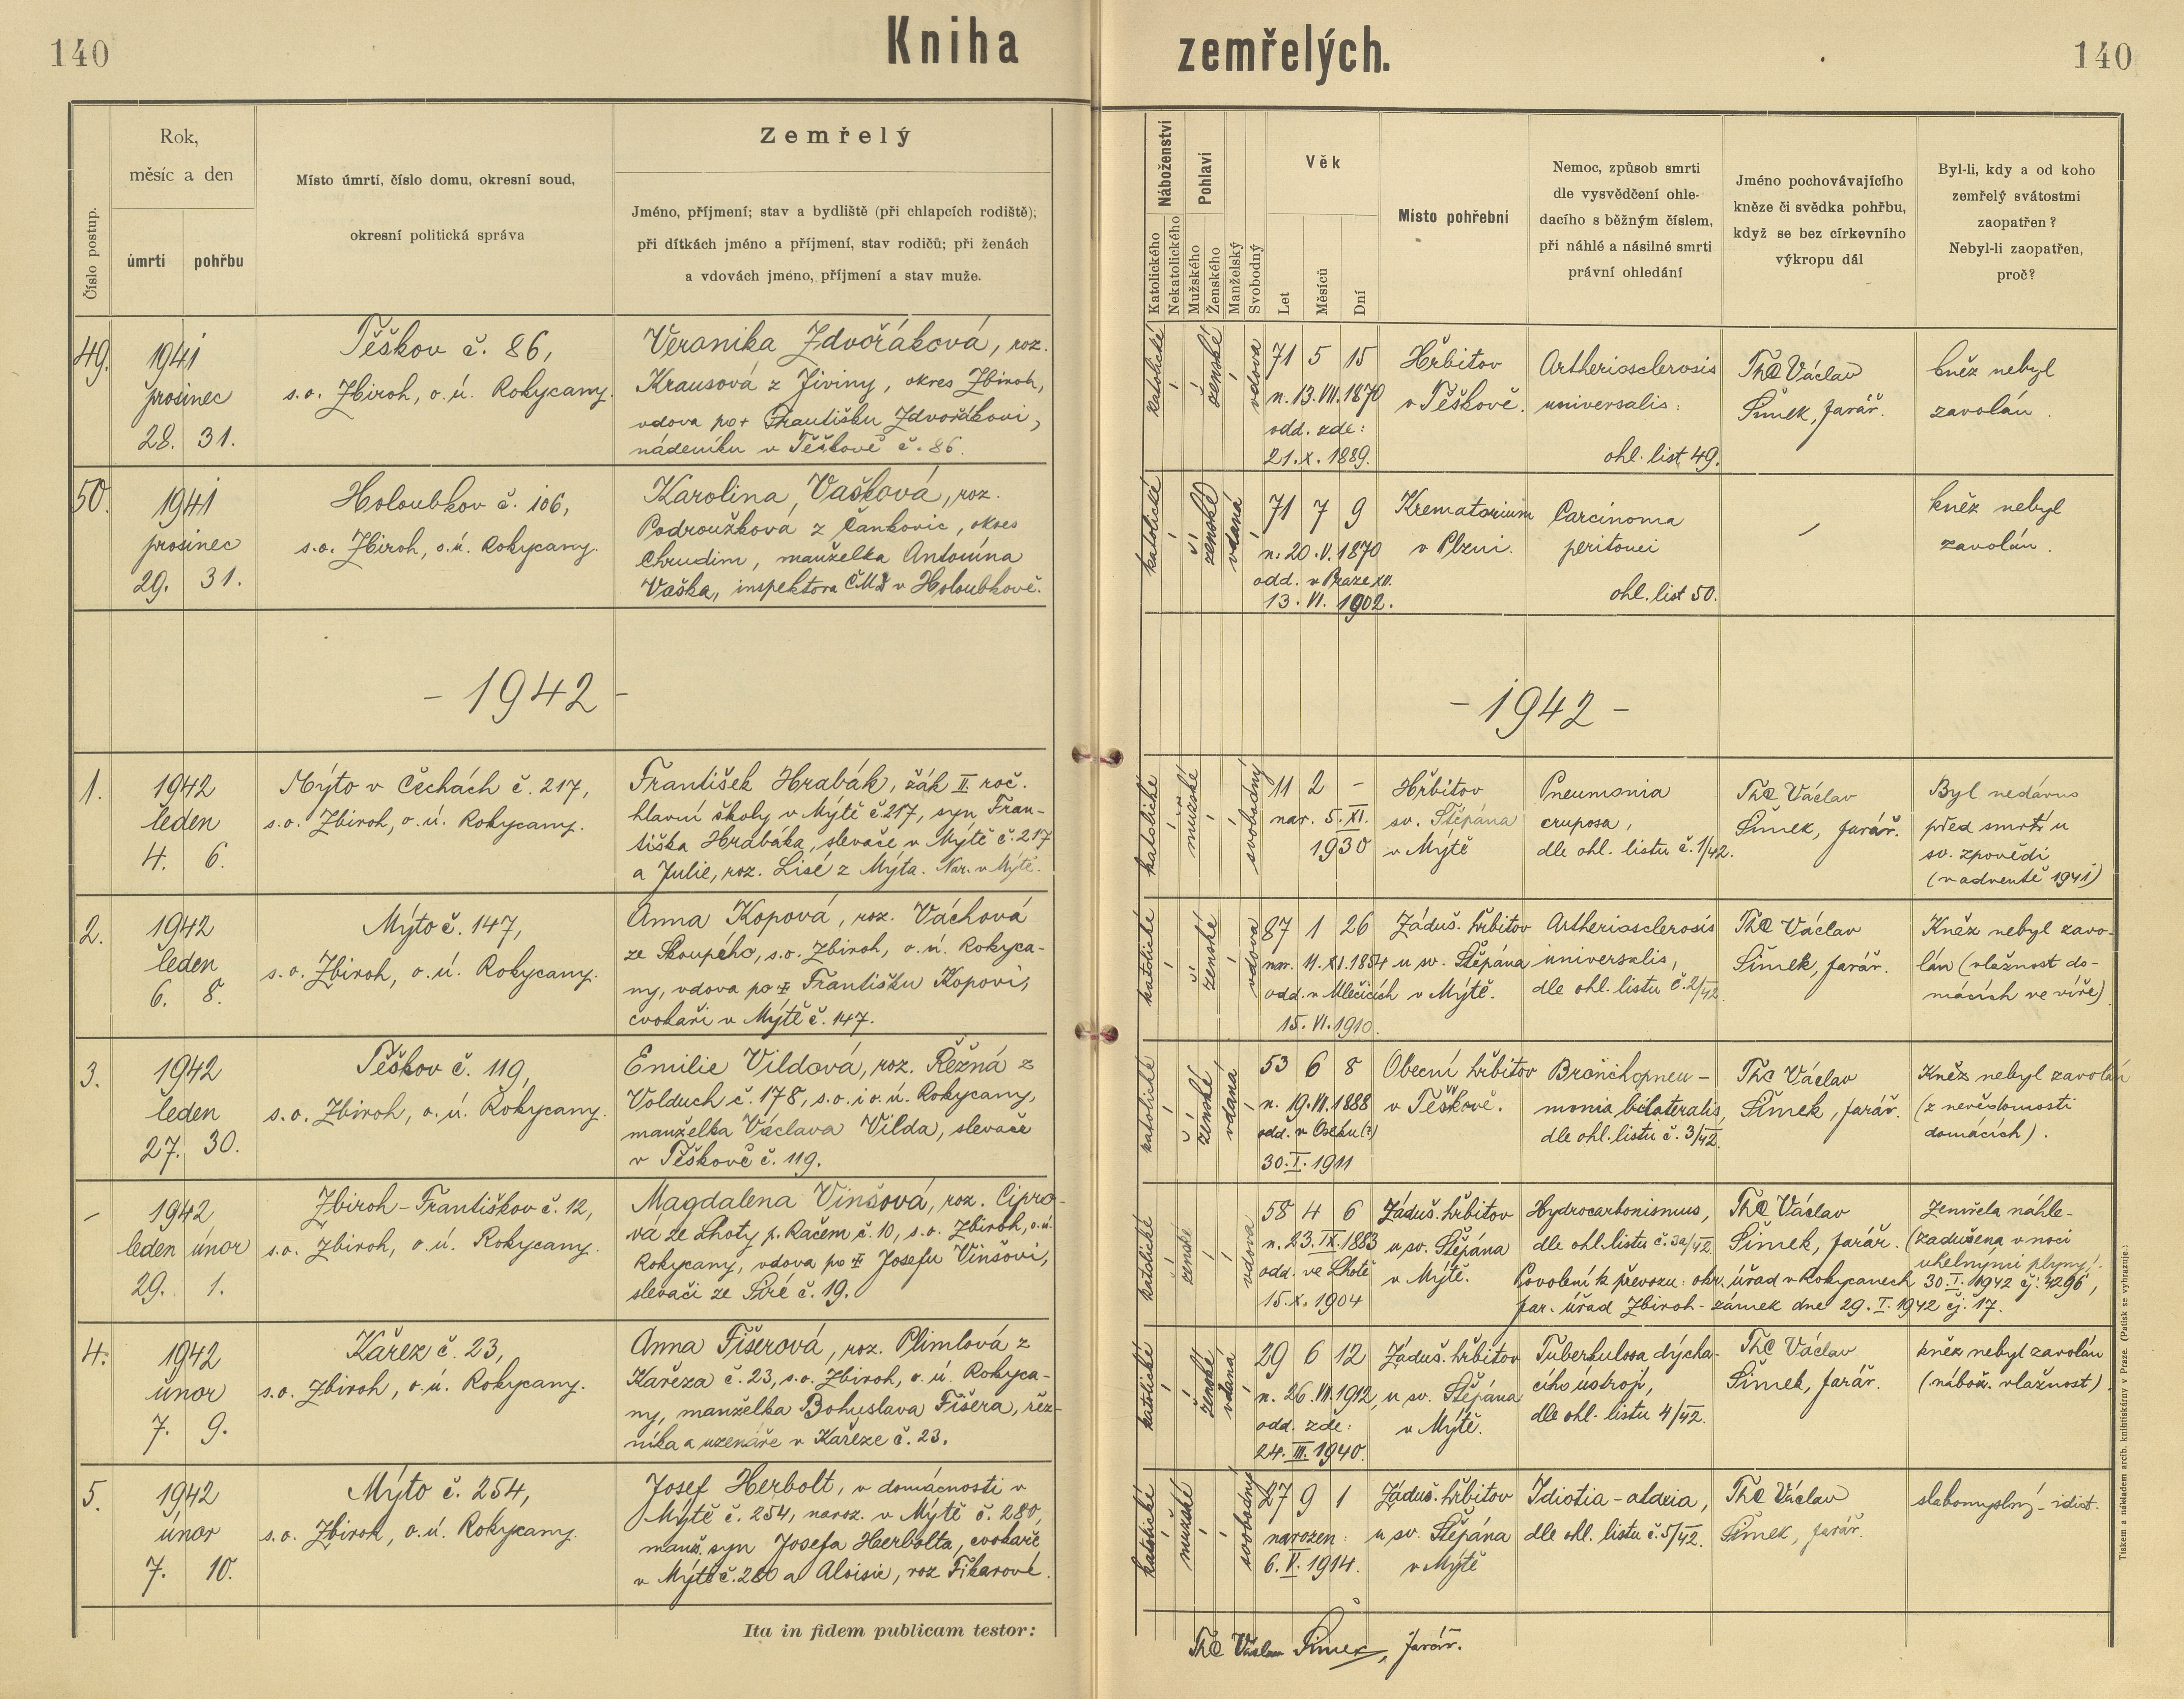 140
Kniha
zemřelých.
140
Číslo postup.
Rok,
měsíc a den
úmrtí
pohřbu
Místo úmrtí, číslo domu, okresní soud,
okresní politická správa
Zemřelý
Jméno, příjmení; stav a bydliště (při chlapcích rodiště);
při dítkách jméno a příjmení, stav rodičů; při ženách
a vdovách jméno, příjmení a stav muže.
Náboženství
Katolického
Nekatolického
Pohlaví
Mužského
Ženského
Manželský
Svobodný
Věk
Let
Měsíců
Dní
Místo pohřební
Nemoc, způsob smrti
dle vysvědčení ohle-
dacího s běžným číslem,
při náhlé a násilné smrti
právní ohledání
Jméno pochovávajícího
kněze či svědka pohřbu,
když se bez církevního
výkropu dál
Byl-li, kdy a od koho
zemřelý svátostmi
zaopatřen?
Nebyl-li zaopatřen,
proč?
49.
1941
prosinec
28. 31.
Těškov č. 86,
s.o. Zbiroh, o.ú. Rokycany.
Veronika Zdvořáková, roz.
Krausová z Jiviny, okres Zbiroh,
vdova po + Františku Zdvořákovi,
nádeníku v Těškově č. 86.
katolické
ženské
vdova
71 5 15
n. 13.VII.1870
odd. zde:
21.X.1889.
Hřbitov
v Těškově.
Artheriosclerosis
universalis:
ohl. list 49.
ThC Václav
Šimek, farář.
kněz nebyl
zavolán.
50.
1941
prosinec
29. 31.
Holoubkov č. 106,
s.o. Zbiroh, o.ú. Rokycany.
Karolina Vašková, roz.
Podroužková z Čankovic, okres
Chrudim, manželka Antonína
Vaška, inspektora ČMD v Holoubkově.
katolické
ženské
vdaná
71 7 9
n. 20.V.1870
odd. v Praze XII.
13.VI.1902.
Krematorium
v Plzni.
Carcinoma
peritonei
ohl. list 50.
–
kněz nebyl
zavolán.
- 1942 -
- 1942 -
1.
1942
leden
4. 6.
Mýto v Čechách č. 217,
s.o. Zbiroh, o.ú. Rokycany.
František Hrabák, žák II. roč.
hlavní školy v Mýtě č. 217, syn Fran-
tiška Hrabáka, slevače v Mýtě č. 217
a Julie, roz. Lisé z Mýta. Nar. v Mýtě.
katolické
mužské
svobodný
11 2 –
nar. 5.XI.
1930
Hřbitov
sv. Štěpána
v Mýtě
Pneumonia
cruposa,
dle ohl. listu č. 1/42.
ThC Václav
Šimek, farář.
Byl nedávno
před smrtí u
sv. zpovědi
(v adventě 1941)
2.
1942
leden
6. 8.
Mýto č. 147,
s.o. Zbiroh, o.ú. Rokycany.
Anna Kopová, roz. Váchová
ze Skoupého, s.o. Zbiroh, o.ú. Rokyca-
ny, vdova po + Františku Kopovi,
cvokaři v Mýtě č. 147.
katolické
ženské
vdova
87 1 26
nar. 11.XI.1854
odd. v Mlečicích
15.VI.1910.
Záduš. hřbitov
u sv. Štěpána
v Mýtě.
Artheriosclerosis
universalis,
dle ohl. listu č. 2/42.
ThC Václav
Šimek, farář.
Kněz nebyl zavo-
lán (vlažnost do-
mácích ve víře)
3.
1942
leden
27. 30.
Těškov č. 119,
s.o. Zbiroh, o.ú. Rokycany.
Emilie Vildová, roz. Řežná z
Volduch č. 178, s.o. i o.ú. Rokycany,
manželka Václava Vilda, slevače
v Těškově č. 119.
katolické
ženské
vdaná
53 6 8
n. 19.VII.1888
odd. v Oseku (?)
30.I.1911
Obecní hřbitov
v Těškově.
Bronchopneu-
monia bilateralis,
dle ohl. listu č. 3/42.
ThC Václav
Šimek, farář.
Kněz nebyl zavolán
(z nevědomosti
domácích).
–
1942
leden únor
29. 1.
Zbiroh - Františkov č. 12,
s.o. Zbiroh, o.ú. Rokycany.
Magdalena Vinšová, roz. Cipro-
vá ze Lhoty p. Račem č. 10, s.o. Zbiroh, o.ú.
Rokycany, vdova po + Josefu Vinšovi,
slevači ze Siré č. 19.
katolické
ženské
vdova
58 4 6
n. 23.IX.1883
odd. ve Lhotě
15.X.1904
Záduš. hřbitov
u sv. Štěpána
v Mýtě.
Hydrocarbonismus,
dle ohl. listu č. 3a/42.
ThC Václav
Šimek, farář.
Zemřela náhle-
(zadušena v noci
uhelnými plyny).
Povolení k převozu: okr. úřad v Rokycanech 30.I.1942 čj. 4296,
far. úřad Zbiroh - zámek dne 29.I.1942 čj. 17.
4.
1942
únor
7. 9.
Kařez č. 23,
s.o. Zbiroh, o.ú. Rokycany.
Anna Fišerová, roz. Plimlová z
Kařeza č. 23, s.o. Zbiroh, o.ú. Rokyca-
ny, manželka Bohuslava Fišera, řez-
níka a uzenáře v Kařeze č. 23.
katolické
ženské
vdaná
29 6 12
n. 26.VII.1912,
odd. zde:
24.III.1940.
Záduš. hřbitov
u sv. Štěpána
v Mýtě.
Tuberkulosa dýcha-
cího ústrojí,
dle ohl. listu 4/42.
ThC Václav
Šimek, farář.
kněz nebyl zavolán
(nábož. vlažnost)
5.
1942
únor
7. 10.
Mýto č. 254,
s.o. Zbiroh, o.ú. Rokycany.
Josef Herbolt, v domácnosti v
Mýtě č. 254, naroz. v Mýtě č. 280,
manž. syn Josefa Herbolta, cvokaře
v Mýtě č. 280 a Aloisie, roz Fikarové.
katolické
mužské
svobodný
27 9 1
narozen:
6.V.1914.
Záduš. hřbitov
u sv. Štěpána
v Mýtě
Idiotia - ataxia,
dle ohl. listu č. 5/42.
ThC Václav
Šimek, farář.
slabomyslný - idiot.
Ita in fidem publicam testor:
ThC Václav Šimek, farář.
Tiskem a nákladem arcib. knihtiskárny v Praze. (Patisk se vyhrazuje.)